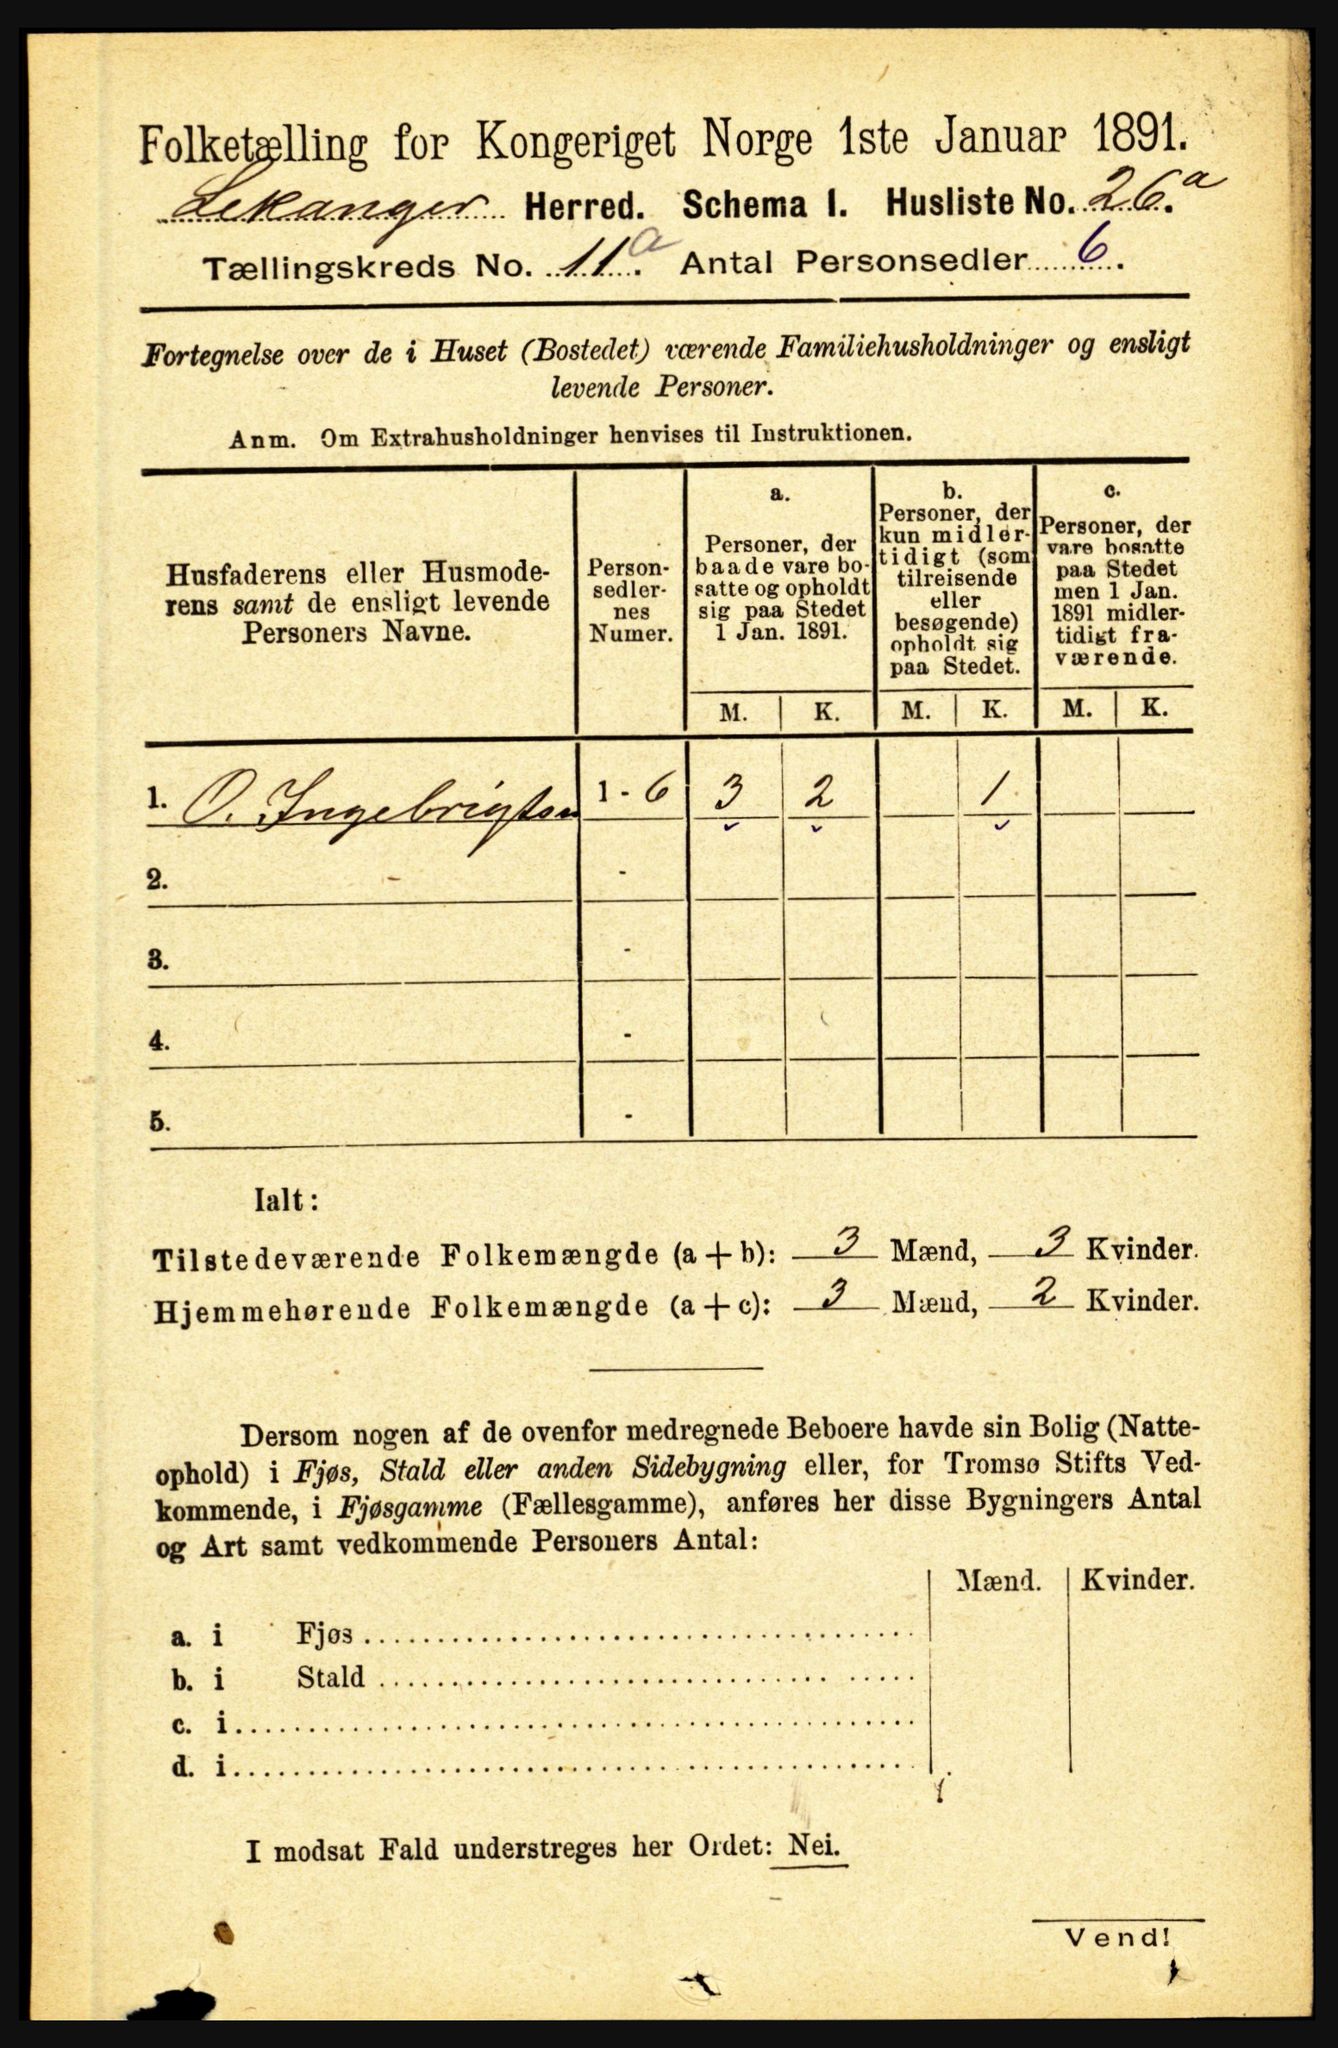 Folketælling for Kongeriget Norge 1ste Januar 1891.
Lekanger Herred. Schema 1. Husliste No. 26.a
Tællingskreds No. 11.a Antal Personsedler 6.
Fortegnelse over de i Huset (Bostedet) værende Familiehusholdninger og ensligt
levende Personer.
Anm. Om Extrahusholdninger henvises til Instruktionen.
Husfaderens eller Husmode-
rens samt de ensligt levende
Personers Navne.
Person-
sedler-
nes
Numer.
a.
Personer, der
baade vare bo-
satte og opholdt
sig paa Stedet
1 Jan. 1891.
b.
Personer, der
kun midler-
tidigt (som
tilreisende
eller
besøgende)
opholdt sig
paa Stedet.
c.
Personer, der
vare bosatte
paa Stedet
men 1 Jan.
1891 midler-
tidigt fra-
værende.
M. K. M. K. M. K.
1. O. Ingebrigtsen 1 - 6 3 2 1
2. -
3. -
4. -
5. -
Ialt:
Tilstedeværende Folkemængde (a + b): 3 Mænd, 3 Kvinder.
Hjemmehørende Folkemængde (a + c): 3 Mænd, 2 Kvinder.
Dersom nogen af de ovenfor medregnede Beboere havde sin Bolig (Natte-
ophold) i Fjøs, Stald eller anden Sidebygning eller, for Tromsø Stifts Ved-
kommende, i Fjøsgamme (Fællesgamme), anføres her disse Bygningers Antal
og Art samt vedkommende Personers Antal:
Mænd. Kvinder.
a. i Fjøs
b. i Stald
c. i
d. i
I modsat Fald understreges her Ordet: Nei.
Vend!